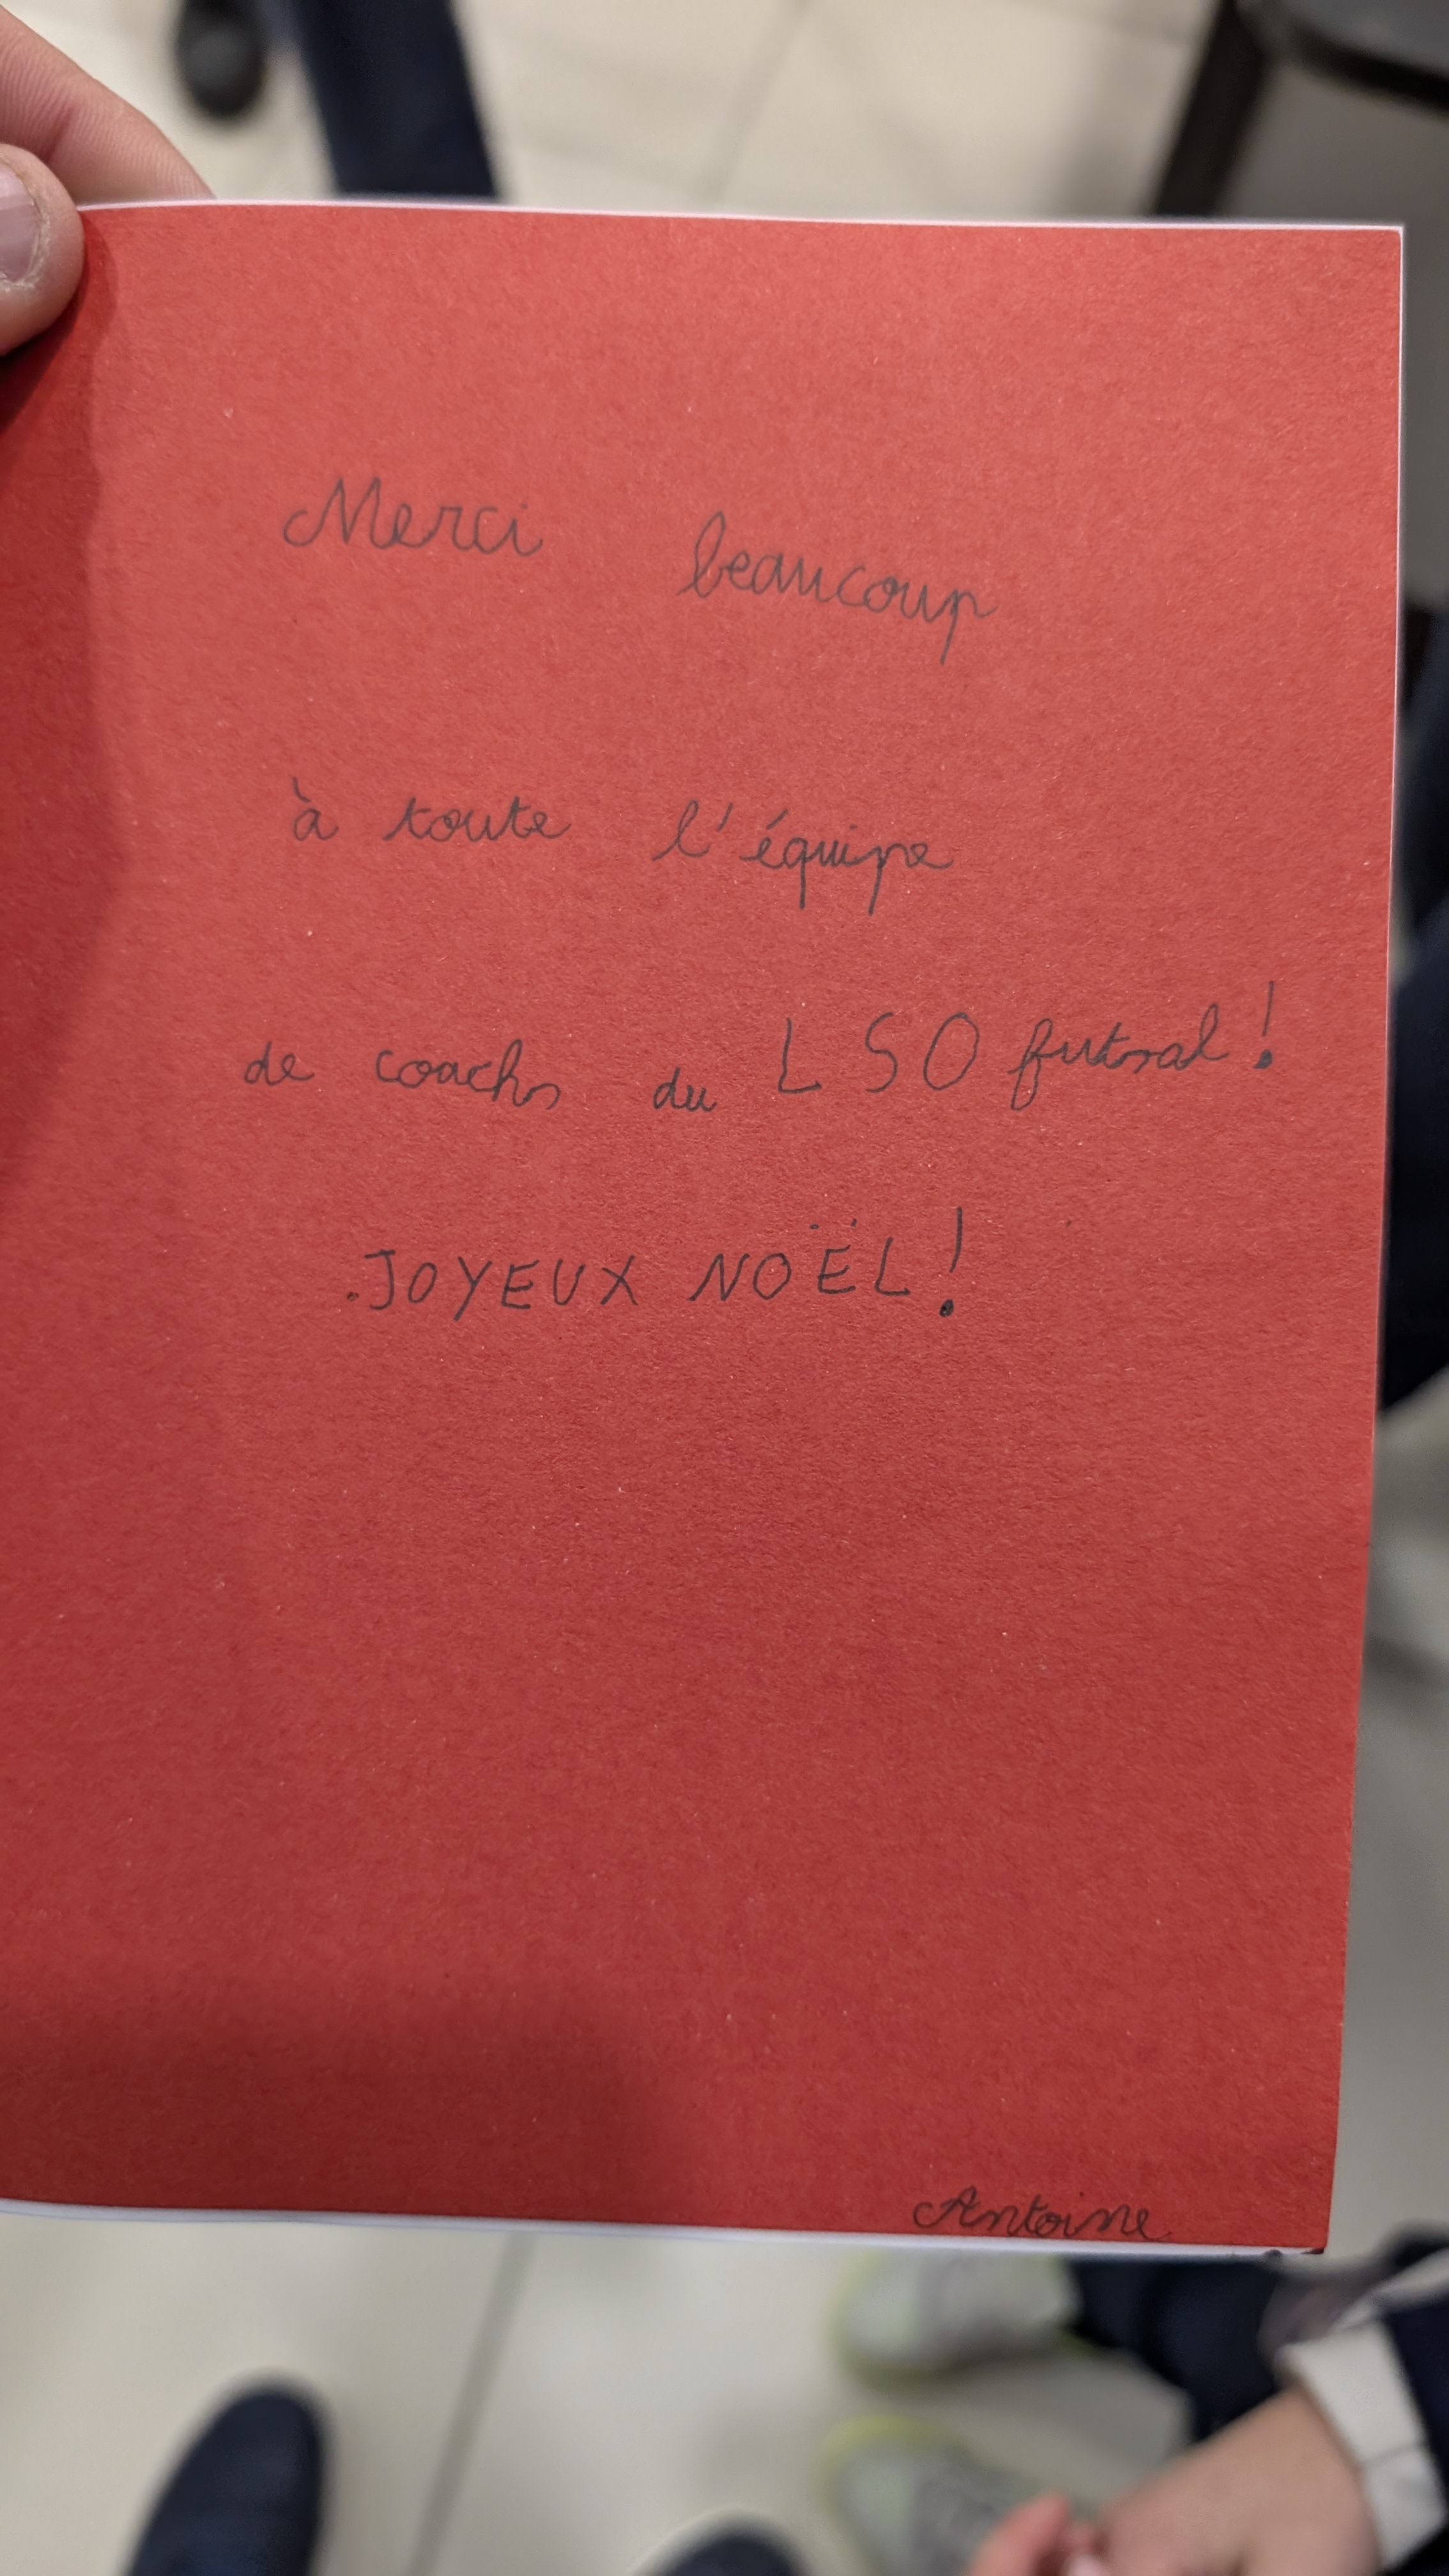 Merci beaucoup
à toute l'équipe
de coachs du LSO futsal !
JOYEUX NOËL !
Antoine